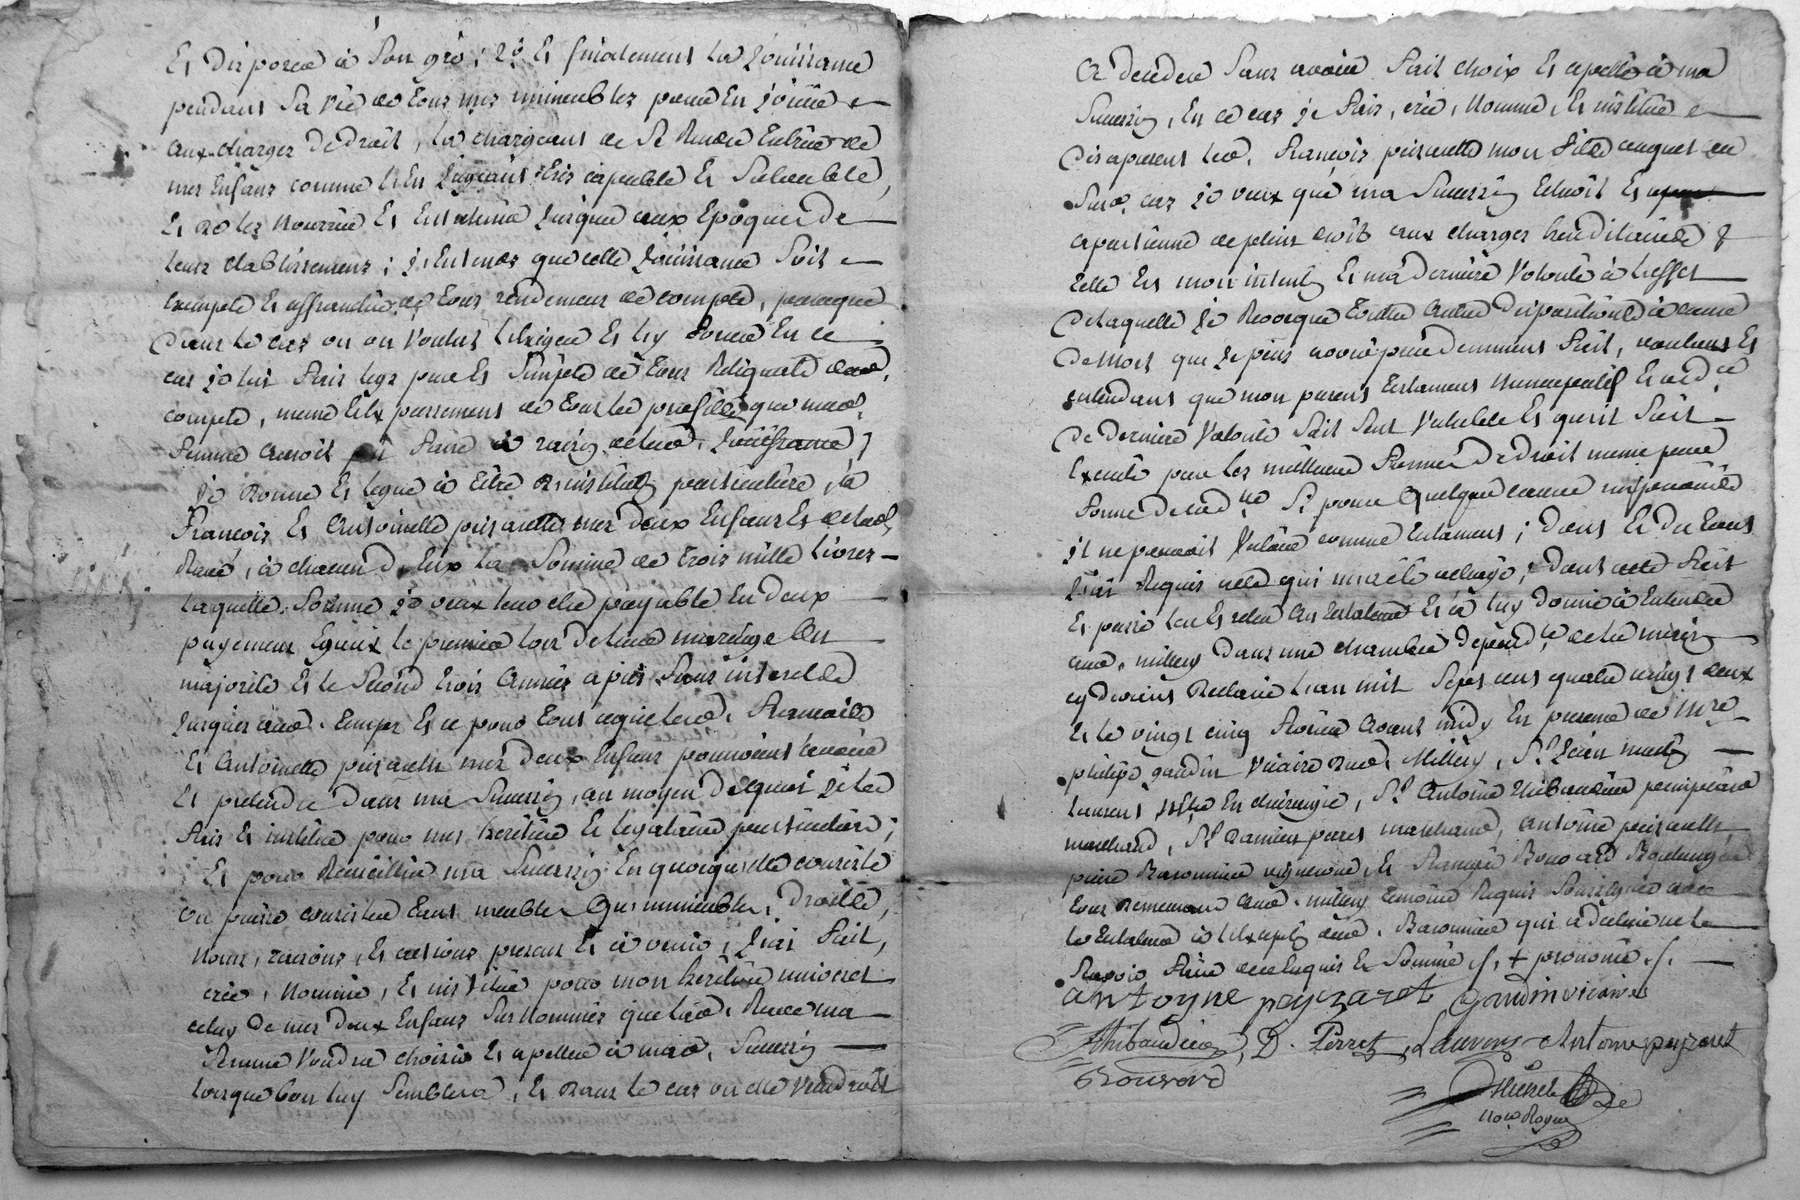 Et disposée à son gré; 2.º Et finalement la jouissance
pendant sa vie de tous mes immeubles pour En jouir
aux charges de droit, la chargeant de se Rendre Entiere de
mes Enfans comme l'En jugeant tres capable Et Solvable,
Et de les Nourrir Et Entretenir jusques aux Epoques de
leurs Etablissemens; j'Entends que cette jouissance soit
Exempte Et affranchie de tous rendemens de compte, parceque
Dans le cas ou on Voulut l'Exiger Et luy former En ce
cas je luy fais legs pur Et simple de tous Reliquats dud.
compte, meme Et payement de tous les profits que mad.
femme auroit pu faire à raison de lad. jouissance;
Je Donne Et legue à titre D'institution particuliere, à
François Et Antoinette peisaret mes deux Enfans Et de lad.
, à chacun D'Eux la Somme de trois mille livres
laquelle Somme je veux leur etre payable En deux
payemens Egaux le premier lors de leur mariage Ou
majorité Et le Second trois Années après Sans interets
jusques aud. temps Et ce pour tout ce que lesd. François
Et Antoinette peisaret mes deux Enfans pourroient avoir
Et pretendre dans ma Succession, au moyen de quoi je les
fais Et institue pour mes heritiers Et legataires particuliers;
Et pour Recueillir ma Succession En quoi qu'elle consiste
ou puisse consister tant meubles Qu'immeubles, Droits,
Noms, raisons, Et actions presens Et à venir, j'ai fait,
créé, Nommé, Et institué pour mon heritier universel
celuy de mes deux Enfans Sus Nommés que lad. ma
femme Voudra choisir Et apeller à mad. Succession
lorsque bon luy Semblera, Et dans le cas ou elle Viendroit
à deceder Sans avoir fait choix Et apellé à ma
Succession, En ce cas je fais, crée, Nomme, Et institue
Des apresent led. François peisarette mon fils auquel aud.
Sus cas je veux que ma Succession Echoit Et
apartienne de plein droit aux charges hereditaires &
telle Est mon intention Et ma derniere Volonté à l'effet
De laquelle je Revoque toutes Autres Dispositions à cause
De Mort que je puis avoir precedemment fait, voulant Et
entendant que mon present testament Nuncupatif Et ord.ce
De Derniere Volonté Soit Seul Valable Et qu'il Soit
Executé par les meilleures formes De droit meme par
forme de cod.lle Si pour Quelque cause
il ne pouvoit Valoir comme testament; Dont Et Du tout
j'ai Requis acte qui m'a été octroyé; Dont acte fait
Et passé lu Et relu Au testateur Et à luy Donné à Entendre
aud. millery Dans une chambre Depend.te de la maison
cy devant Declarée l'an mil Sept cent quatre vingt deux
Et le vingt cinq fevrier Avant midy En presence de M.re
philipe gaudin Vicaire dud. Millery, S.r Jean marie
laurent M.tre En chirurgie, S.r Antoine thibaudier
marchand, S.r Damien perret marchand, Antoine peisaret
pierre Baronnier vigneron, Et François Bouvard Boulanger
tous Demeurant aud. millery temoins Requis Soussignés avec
le testateur à l'Exception dud. Baronnier qui a declaré ne le
Savoir faire de ce Enquis Et Sommé ./. + prononcé ./.
antoyne peyzaret Gaudin vicaire
Thibaudier, D. Perret, Laurens Antoine peyzaret
Bouvard
No.re Royal